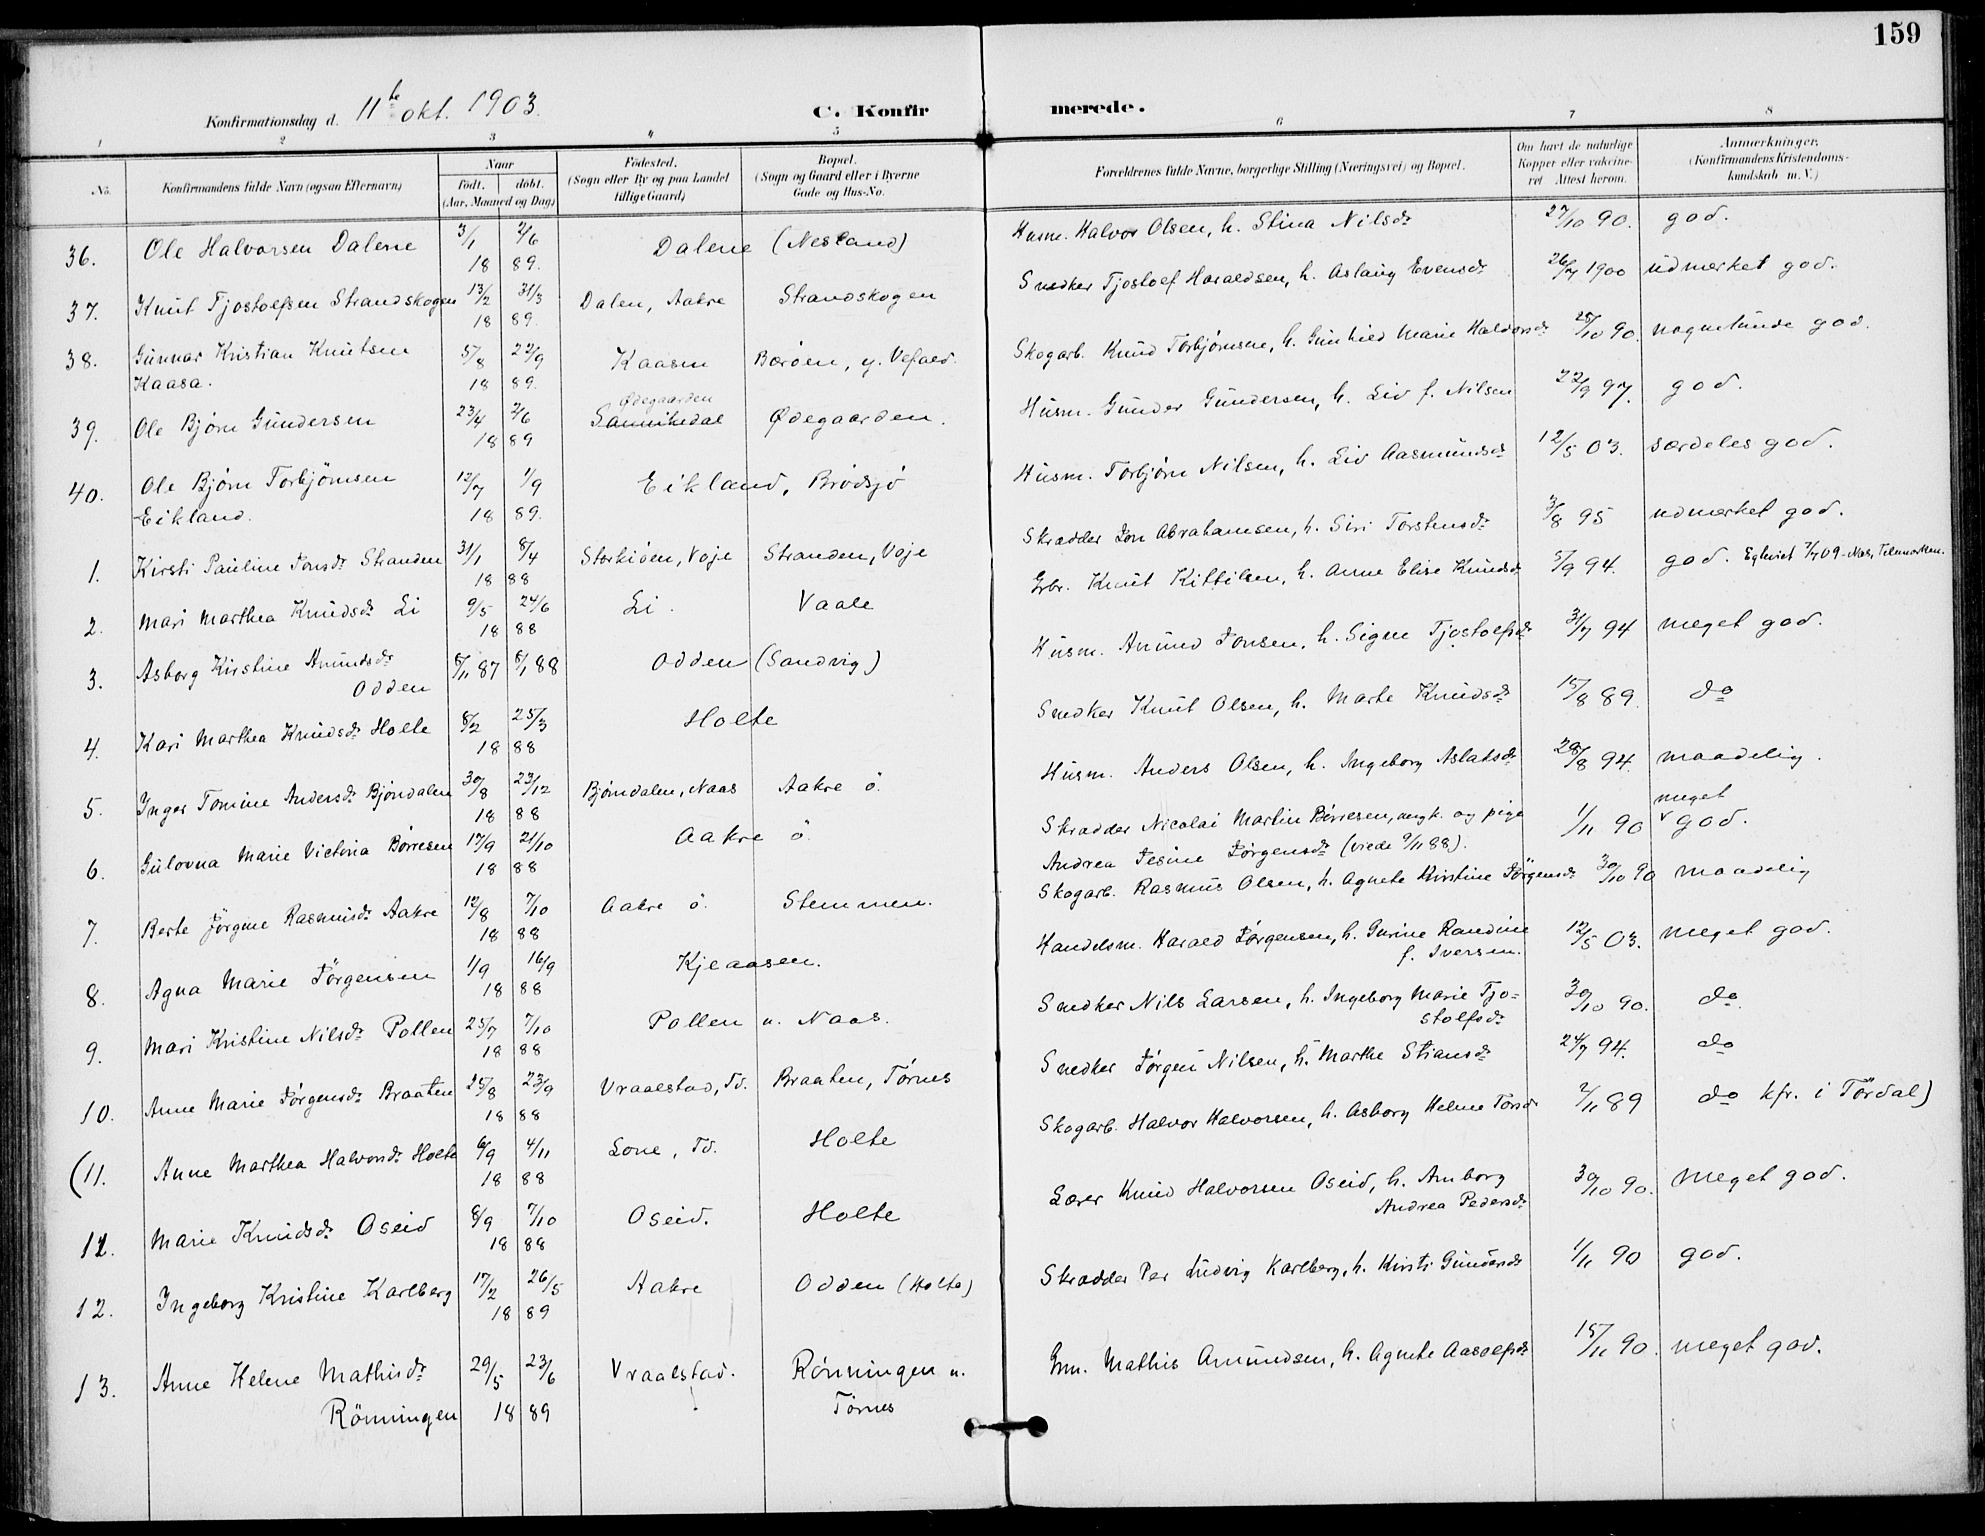 159
Konfirmationsdag d. 11te okt. 1903.
C. Konfirmerede.
1 2 3 4 5 6 7 8
No.
Konfirmandens fulde Navn (ogsaa Efternavn)
Naar
født. døbt.
(Aar, Maaned og Dag)
Fødested.
(Sogn eller By og paa Landet
tillige Gaard)
Bopæl.
(Sogn og Gaard eller i Byerne
Gade og Hus-No.
Forældrenes fulde Navne, borgerlige Stilling (Næringsvei) og Bopæl.
Om havt de naturlige
Kopper eller vakcine-
ret Attest herom.
Anmærkninger.
(Konfirmandens Kristendoms-
kundskab m. V.)
36. Ole Halvorsen Dalene 3/1 2/6 Dalene (Nesland) Husm. Halvor Olsen, h. Stina Nilsdr 27/10 90. god.
18 89.
37. Knut Tjostolfsen Strandskogen 13/2 31/3 Dalen, Aakre Strandskogen Snedker Tjostolf Haraldsen, h. Aslaug Evensdr 26/7 1900 udmerket god.
18 89.
38. Gunnar Kristian Knutsen 5/8 22/9 Kaasen Barøen, y. Vefald. Skogarb. Knud Torbjørnsen, h. Gunhild Marie Halvorsdr 25/10 90. nogenlunde god.
Kaasa. 18 89.
39. Ole Bjørn Gundersen 23/4 2/6 Ødegaarden Sannikedal Ødegaarden. Husm. Gunder Gundersen, h. Liv f. Nilsen 22/9 97. god.
18 89
40. Ole Bjørn Torbjörnsen 12/7 1/9 Eikland, Brødsjø Husm. Torbjørn Nilsen, h. Liv Aasmundsdr 12/5 03. særdeles god.
Eikland. 18 89.
1. Kirsti Pauline Jonsdr Stranden 31/1 8/4 Storkiøen, Voje Stranden, Voje Skrædder Jon Abrahamsen, h. Siri Torstensdr 3/8 95 udmærket god.
18 88
2. Mari Marthea Knudsdr Li 9/5 24/6 Li. Vaale Gbr. Knut Kittilsen, h. Anne Elise Knudsdr 5/9 94. god. Egteviet 7/7 09 - Nes, Telemarken.
18 88
3. Asborg Kirstine Anundsdr 8/11 87 8/1 88 Odden (Sandvig) Husm. Anund Jonsen, h. Signe Tjostolfsdr 31/7 94 meget god.
Odden
4. Kari Marthea Knudsdr Holte 8/2 25/3 Holte Snedker Knut Olsen, h. Marte Knudsdr 15/8 89. do
18 88
5. Inger Tomine Andersdr Bjöndalen 30/8 23/12 Bjørndalen, Naas Aakre ö. Husm. Anders Olsen, h. Ingeborg Aslaksdr 28/8 94. maadelig.
18 88
6. Gulovna Marie Victoria Børresen 17/9 21/10 Aakre ö. Skrædder Nicolai Martin Børresen, ungk. og pige 1/11 90 meget god.
18 88 Andrea Jesine Jørgensdr (viede 9/11 88).
7. Berte Jörgine Rasmusdr Aakre 12/8 7/10 Aakre ö. Stemmen. Skogarb. Rasmus Olsen, h. Agnete Kirstine Jörgensdr 30/10 90 maadelig
18 88
8. Agna Marie Jörgensen 1/9 16/9 Kjeaasen. Handelsm. Harald Jørgensen, h. Gurine Randine 12/5 03. meget god.
18 88 f. Iversen.
9. Mari Kristine Nilsdr Pollen 25/7 7/10 Pollen u. Naas. Snedker Nils Larsen, h. Ingeborg Marie Tjo- 30/10 90. do
18 88 stolfsdr
10. Anne Marie Jörgensdr Braaten 25/8 23/9 Vraalstad, Td. Braaten, Tørnes Snedker Jørgen Nilsen, h. Marthe Stiansdr 24/7 94. do
18 88
(11. Anne Marthea Halvorsdr Holte 6/9 4/11 Lone, Td. Holte Skogarb. Halvor Halvorsen, h. Asborg Helene Torsdr 2/11 89 do kfr. i Tördal)
18 88
12. Marie Knudsdr Oseid 8/9 7/10 Oseid. Holte Lærer Knud Halvorsen Oseid, h. Amborg 30/10 90. meget god.
18 88 Andrea Pedersdr
12. Ingeborg Kristine Karlberg 17/2 26/5 Aakre Odden (Holte) Skrædder Per Ludvig Karlberg, h. Kirsti Gundersdr 1/11 90 god.
18 89
13. Anne Helene Mathisdr 29/5 23/6 Vraalstad. Rönningen u. Gm. Mathis Amundsen, h. Agnete Aasolfsdr 15/11 90. meget god.
Rönningen 18 89 Tørnes